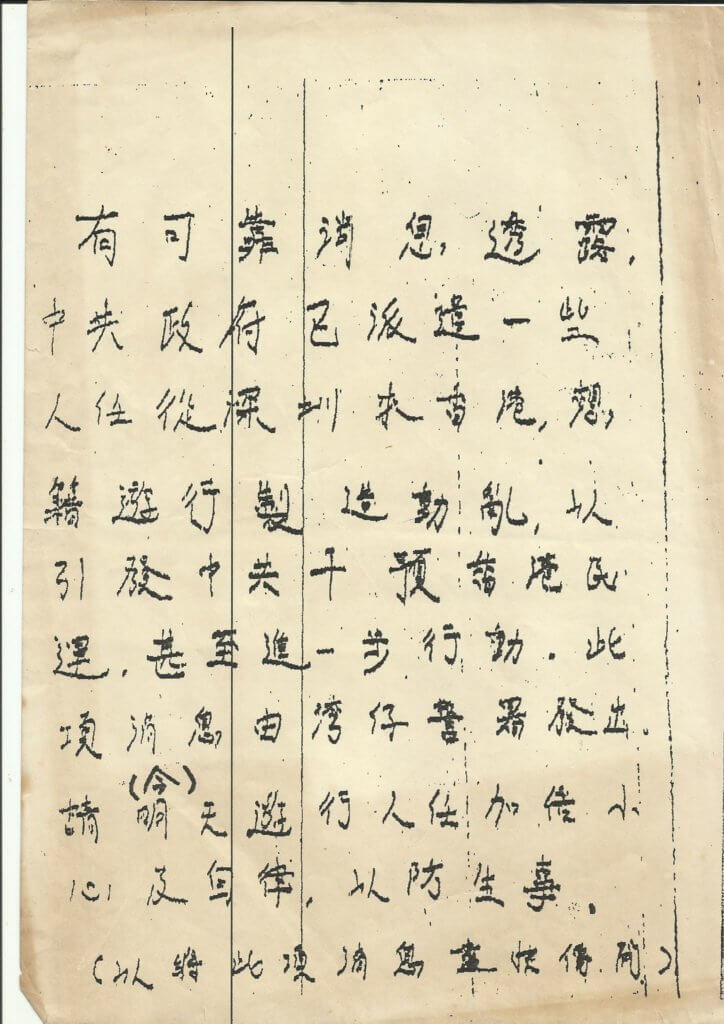 有可靠消息透露,
中共政府已派遣一些
人仼從深圳來香港,想
籍遊行製造動亂,以
引發中共干預香港民
運,甚至進一步行動.此
項消息由湾仔警署發出.
請明(今)天遊行人仼加倍小
心及自律,以防生事.
(以將此項消息盡快傳開)